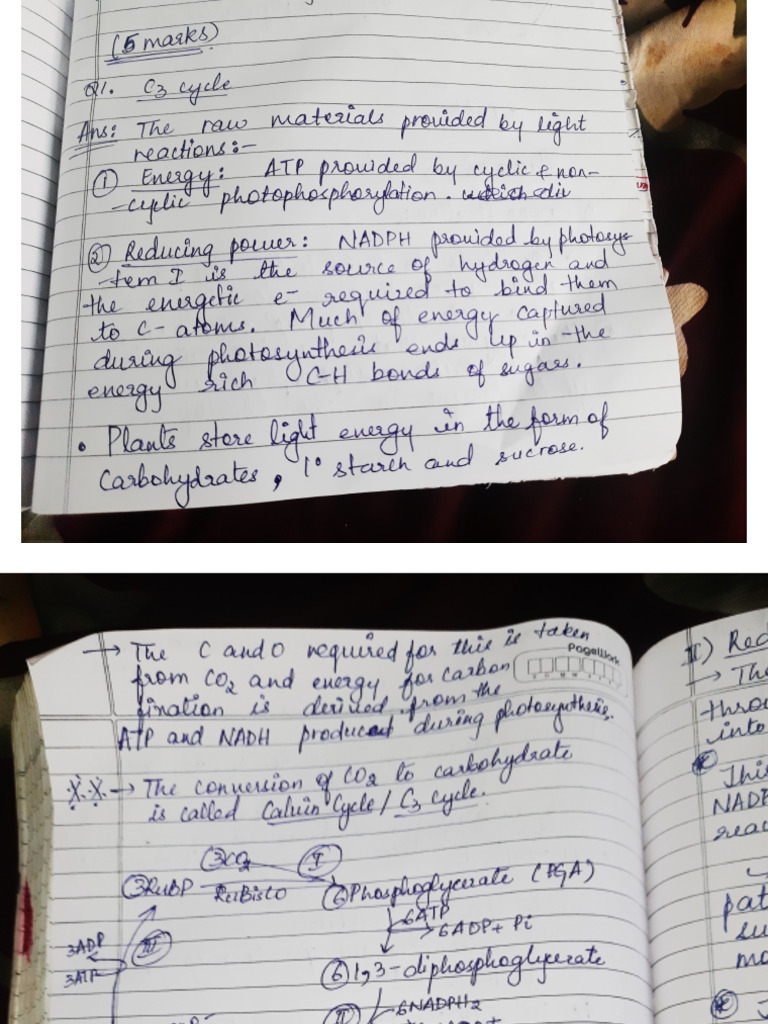 (5 marks)
Q1. C3 cycle
Ans: The raw materials provided by light
reactions:-
① Energy: ATP provided by cyclic & non-
-cyclic photophosphorylation.
② Reducing power: NADPH provided by photosys
-tem I is the source of hydrogen and
the energetic e- required to bind them
to C-atoms. Much of energy captured
during photosynthesis ends up in the
energy rich C-H bonds of sugars.
• Plants store light energy in the form of
Carbohydrates, 1° starch and sucrose.
→ The C and O required for this is taken
PageWork
from CO2 and energy for carbon
fixation is derived from the
ATP and NADH produced during photosynthesis.
→ The conversion of CO2 to carbohydrate
is called Calvin Cycle / C3 cycle.
③CO2 Ⓘ
③RuBP RuBisCO ⑥Phosphoglycerate (PGA)
6ATP
6ADP + Pi
3ADP
3ATP
III
⑥1,3-diphosphoglycerate
II 6NADPH2
II) Red
→ The
throu
into
This
NADP
reac
pat
su
mo